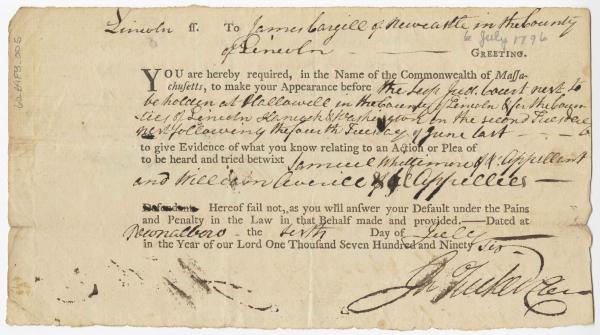 Lincoln ss. To James Cargill of Newcastle in the County
of Lincoln — GREETING.
6 July 1796
YOU are hereby required, in the Name of the Commonwealth of Massa-
chusetts, to make your Appearance before the Sup. Jud. Court next to
be holden at Hallowell in the County of Lincoln & for the Coun
ties of Lincoln Hancock & Washington on the second Tuesday
next following the fourth Tuesday of June last
to give Evidence of what you know relating to an Action or Plea of
to be heard and tried betwixt Samuel Whittimore & al Appellant
and William Averill & al Appellees
Defendant. Hereof fail not, as you will answer your Default under the Pains
and Penalty in the Law in that Behalf made and provided.—Dated at
Pownalboro the sixth Day of July
in the Year of our Lord One Thousand Seven Hundred and Ninety six
Jn Tucker Cler